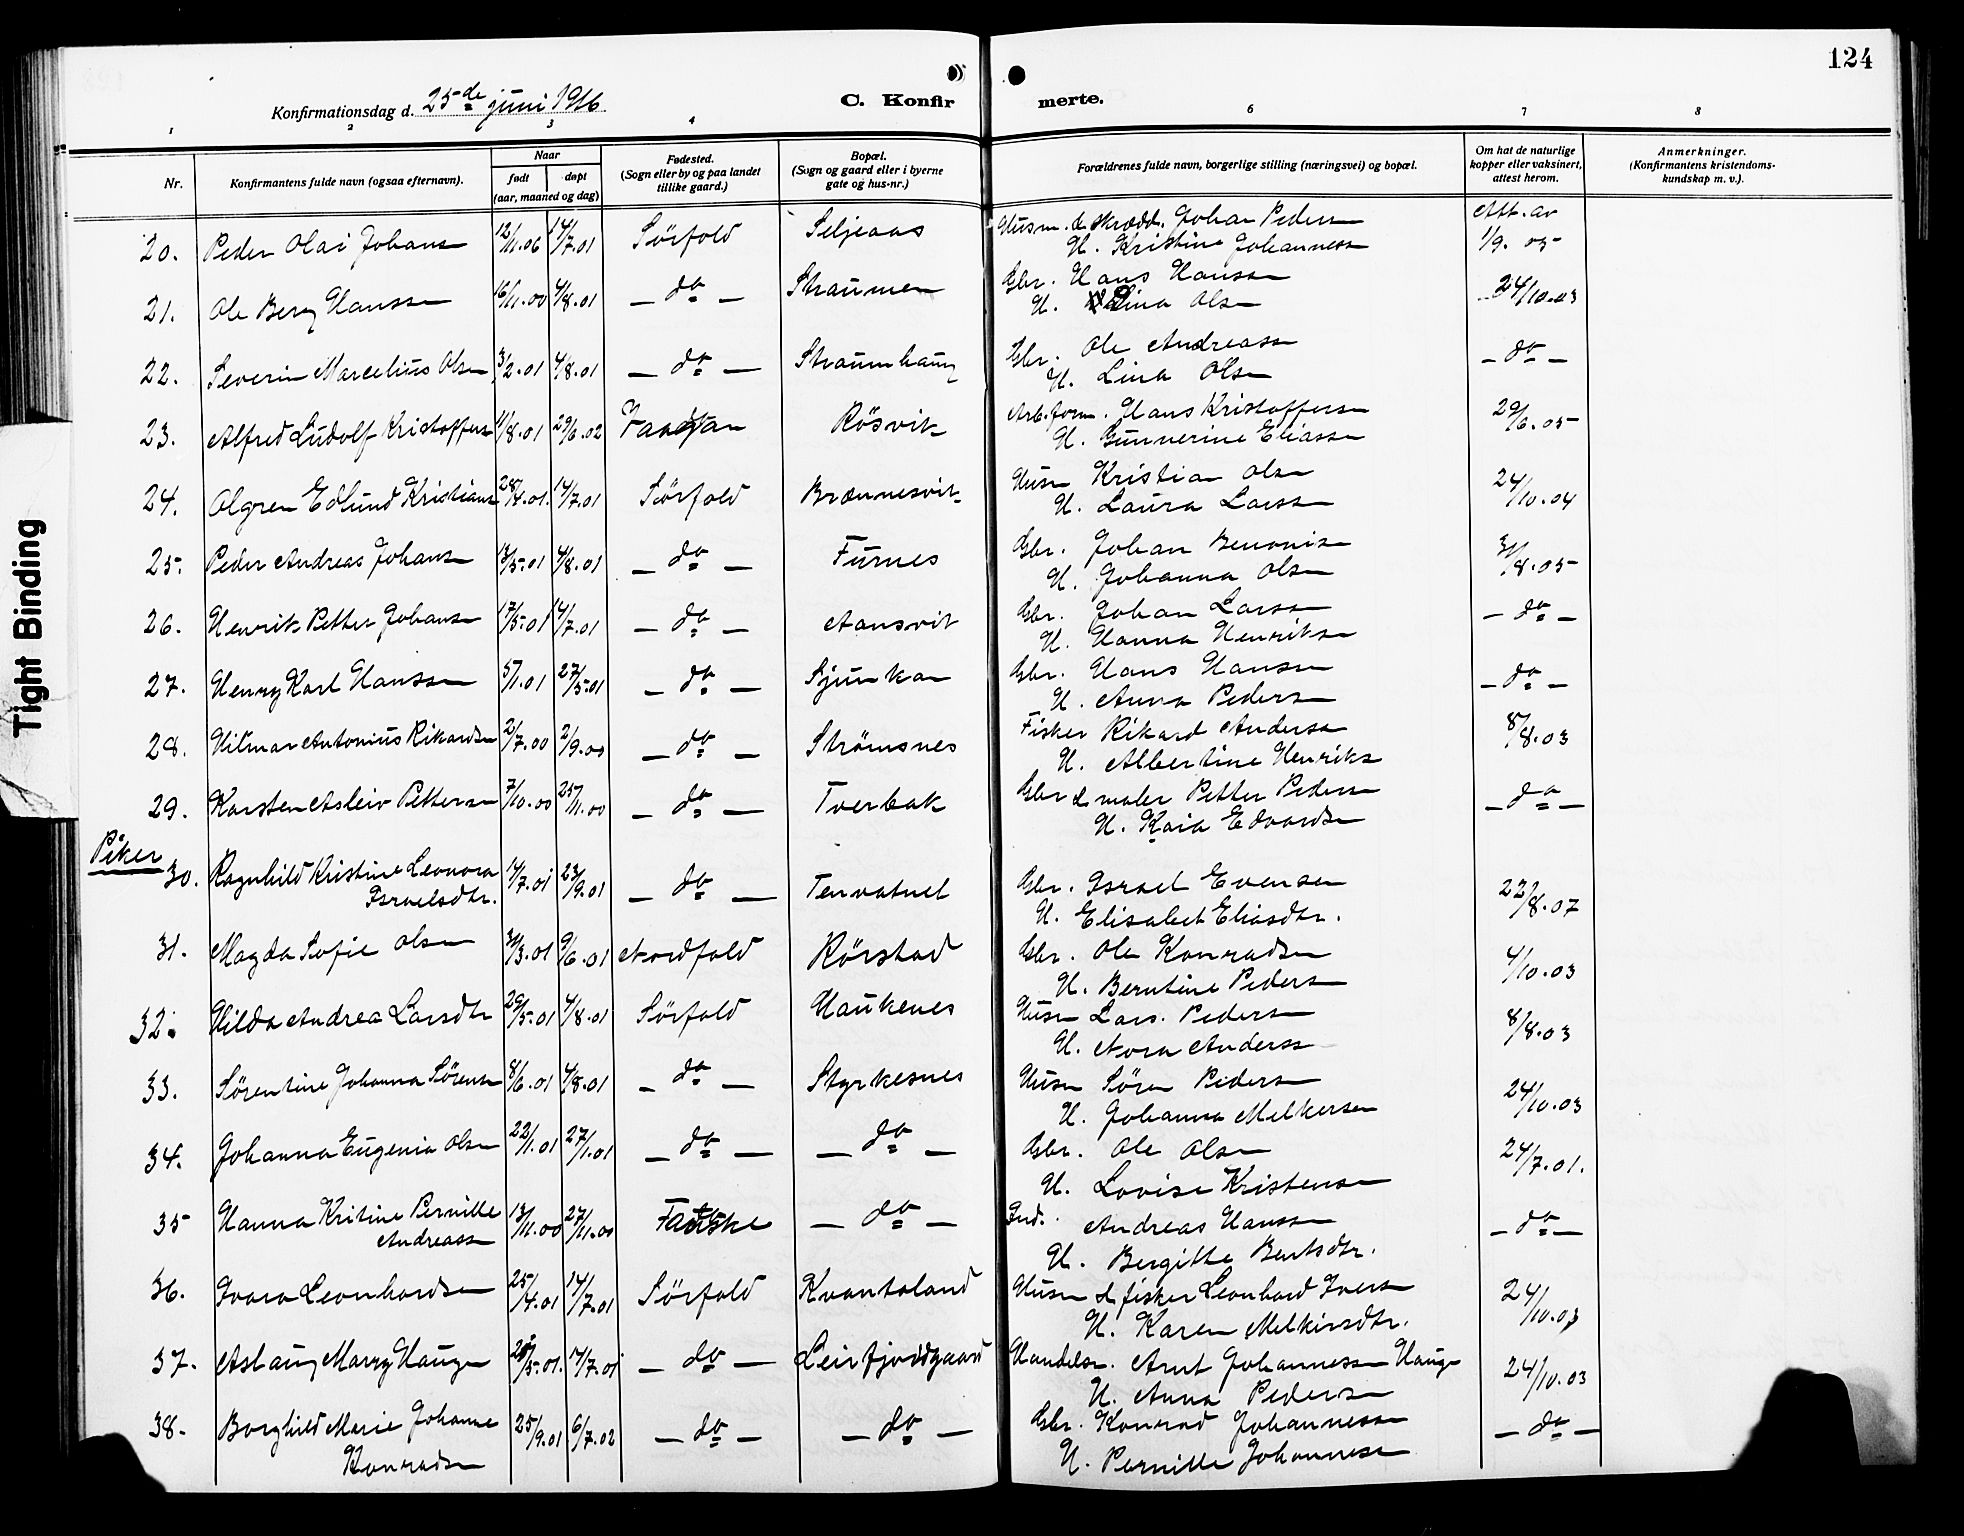 124
Konfirmationsdag d. 25de juni 1916
C. Konfir merte.
1 2 3 4 6 7 8
Nr. Konfirmantens fulde navn (ogsaa efternavn). Naar født døpt (aar, maaned og dag) Fødested. (Sogn eller by og paa landet tillike gaard.) Bopæl. (Sogn og gaard eller i byerne gate og hus-nr.) Forældrenes fulde navn, borgerlige stilling (næringsvei) og bopæl. Om hat de naturlige kopper eller vaksinert, attest herom. Anmerkninger. (Konfirmantens kristendoms-kundskap m. v.).
20. Peder Olai Johans 12/11.06 14/7.01 Sörfold Seljeaas Husm. & skrædd. Johan Peders Att. av
H. Kristine Johanness 1/9. 05
21. Ole Berg Hanssen 16/11.00 4/8.01 - do - Straumen Gbr. Hans Hanssen 24/10.03
H. Lina Olsn
22. Severin Marcelius Olsen 3/2.01 4/8.01 - do - Straumhaug Gbr. Ole Andreassn - do -
H. Lina Olsn
23. Alfred Ludolf Kristoffers 11/8.01 29/6.02 Rösvik Arb.form. Hans Kristoffersn 29/6.05
H. Gunnerine Eliassn
24. Olgren Edlund Kristians 28/4.01. 14/7.01 Sörfold Brænnesvik Husm Kristian Olsn 24/10.04
H. Laura Larssn
25. Peder Andreas Johansn 13/5.01 4/8.01 - do - Furnes Gbr. Johan Benonisn 31/8.05
H. Johanna Olsn
26. Henrik Petter Johansn 17/5.01 14/7.01 - do - Aansvik Gbr. Johan Larssn - do -
H. Hanna Henriksn
27. Henry Karl Hanssen 5/1.01 27/5.01 - do - Sjunkan Gbr. Hans Hansen - do -
H. Anna Pedersn
28. Hilmar Antonius Rikardsn 2/7.00 2/9.00 - do - Strömsnes Fisker Rikard Andersn 8/8.03
H. Albertine Henriks
29. Karsten Asleiv Pettersn 7/10.00 25/11.00 - do - Tverbak Gbr & maler Petter Pedersn - do -
H. Kaia Edvardsn
Piker
30. Ragnhild Kristine Leonora 14/7.01 23/9.01 - do - Tenvatnet Gbr. Israel Evensen 22/8.07
Israelsdtr. H. Elisabet Eliasdtr.
31. Magda Sofie Olsen 30/3.01 9/6.01 Nordfold Rörstad Gbr. Ole Konradsn 4/10.03
H. Berntine Peders
32. Hilda Andrea Larsdtr 29/5.01 4/8.01 Sörfold Haukenes Husm Lars. Pedersn 8/8.03
H. Nora Anderss
33. Sörentine Johanna Sörensn 8/6.01 4/8.01 - do - Styrkesnes Husm Sören Pedersn 24/10.03
H. Johanna Melkersen
34. Johanna Eugenia Olsn 22/1.01 27/1.01 - do - - do - Gbr. Ole Olsn 24/7.01.
H. Lovise Kristensn
35 Hanna Kritine Pernille 13/11.00 27/11.00 Fauske - do - Ind. Andreas Hanssn - do -
Andreassn H. Bergitte Bentsdtr.
36. Ivara Leonhardsen 25/4.01 14/7.01 Sörfold Kvantoland Husm & fisker Leonhard Ivers 24/10.03
H. Karen Melkersdtr.
37. Aslaug Marry Hauge 28/5.01. 14/7.01 - do - Leirfjordgaard Handelsm. Arnt Johannessn Hauge 24/10.03
H. Anna Pedersn
38. Borghild Marie Johanne 25/9.01 6/7.02 - do - - do - Gbr. Konrad Johannessn - do -
Konradsn H. Pernille Johannessn
Tight Binding